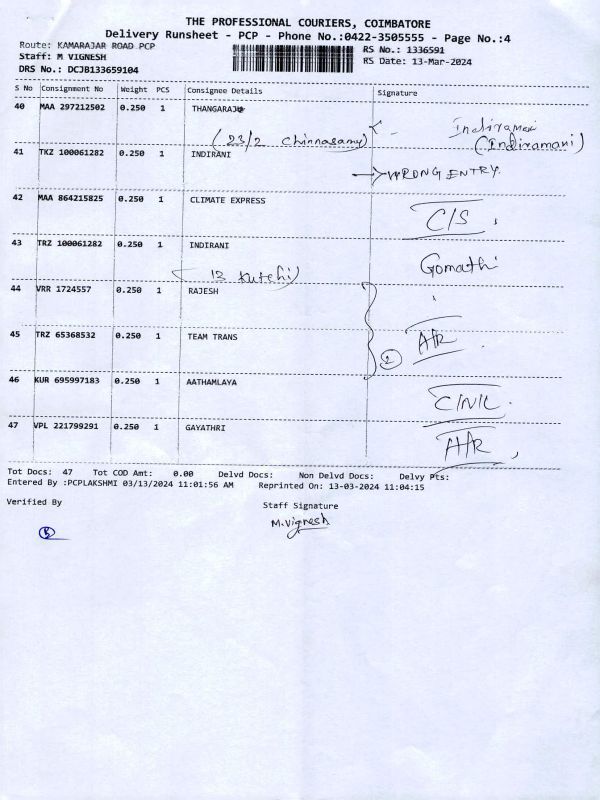 THE PROFESSIONAL COURIERS, COIMBATORE
Delivery Runsheet - PCP - Phone No.:0422-3505555 - Page No.:4
Route: KAMARAJAR ROAD PCP
RS No.: 1336591
Staff: M VIGNESH
RS Date: 13-Mar-2024
DRS No.: DCJB133659104
S No Consignment No Weight PCS Consignee Details Signature
40 MAA 297212502 0.250 1 THANGARAJU
(23/2 Chinnasamy) Indiramani
(Indiramani)
41 TKZ 100061282 0.250 1 INDIRANI
WRONG ENTRY.
42 MAA 864215825 0.250 1 CLIMATE EXPRESS
C/S
43 TRZ 100061282 0.250 1 INDIRANI
(12 Kutchi) Gomathi
44 VRR 1724557 0.250 1 RAJESH
45 TRZ 65368532 0.250 1 TEAM TRANS
2 A/R
46 KUR 695997183 0.250 1 AATHAMLAYA
47 VPL 221799291 0.250 1 GAYATHRI
A/R
Tot Docs: 47 Tot COD Amt: 0.00 Delvd Docs: Non Delvd Docs: Delvy Pts:
Entered By :PCPLAKSHMI 03/13/2024 11:01:56 AM Reprinted On: 13-03-2024 11:04:15
Verified By Staff Signature
M.Vignesh